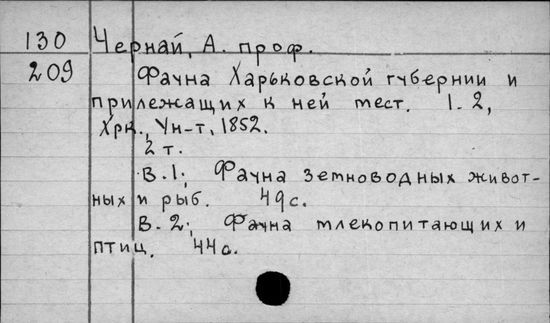 130 Чернай, А. проф.
209 Фауна Харьковской губернии и
прилежащих к ней мест. 1-2,
Хрк., Ун-т, 1852.
2 т.
В. 1; Фауна земноводных живот-
ных и рыб. 49с.
В. 2; Фауна млекопитающих и
птиц. 44с.